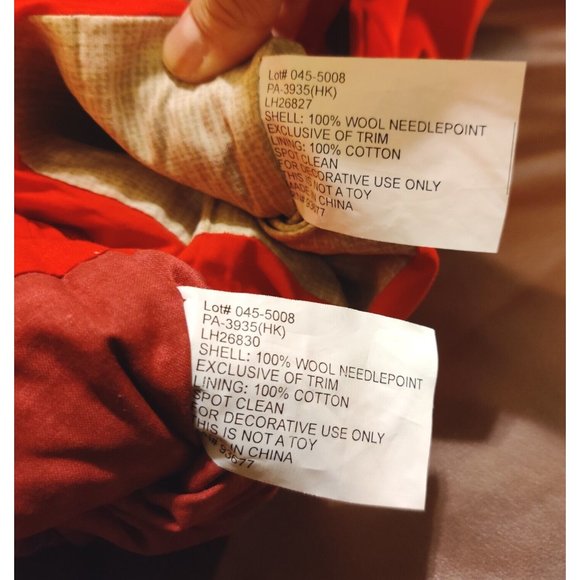 Lot# 045-5008
PA-3935(HK)
LH26827
SHELL: 100% WOOL NEEDLEPOINT
EXCLUSIVE OF TRIM
LINING: 100% COTTON
SPOT CLEAN
FOR DECORATIVE USE ONLY
THIS IS NOT A TOY
MADE IN CHINA
93677
Lot# 045-5008
PA-3935(HK)
LH26830
SHELL: 100% WOOL NEEDLEPOINT
EXCLUSIVE OF TRIM
LINING: 100% COTTON
SPOT CLEAN
FOR DECORATIVE USE ONLY
THIS IS NOT A TOY
IN CHINA
93677